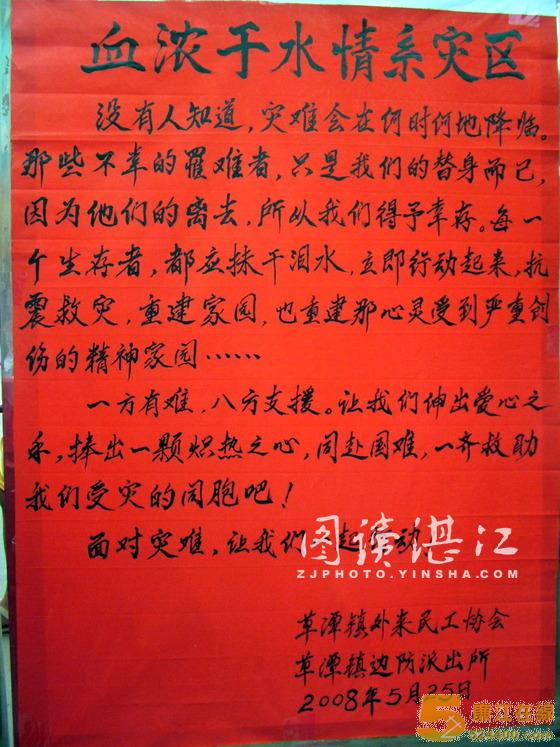 血浓于水情系灾区
没有人知道，灾难会在何时何地降临。
那些不幸的罹难者，只是我们的替身而已，
因为他们的离去，所以我们得予幸存。每一
个生存者，都应抹干泪水，立即行动起来，抗
震救灾，重建家园，也重建那心灵受到严重创
伤的精神家园……
一方有难，八方支援。让我们伸出爱心之
手，捧出一颗炽热之心，同赴国难，一齐救助
我们受灾的同胞吧！
面对灾难，让我们一起行动！
图读湛江
ZJPHOTO.YINSHA.COM
草潭镇外来民工协会
草潭镇边防派出所
2008年5月25日
廉江在线
524400.com